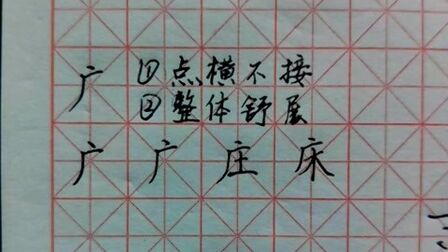 广 ①点横不接
②整体舒展
广 广 庄 床